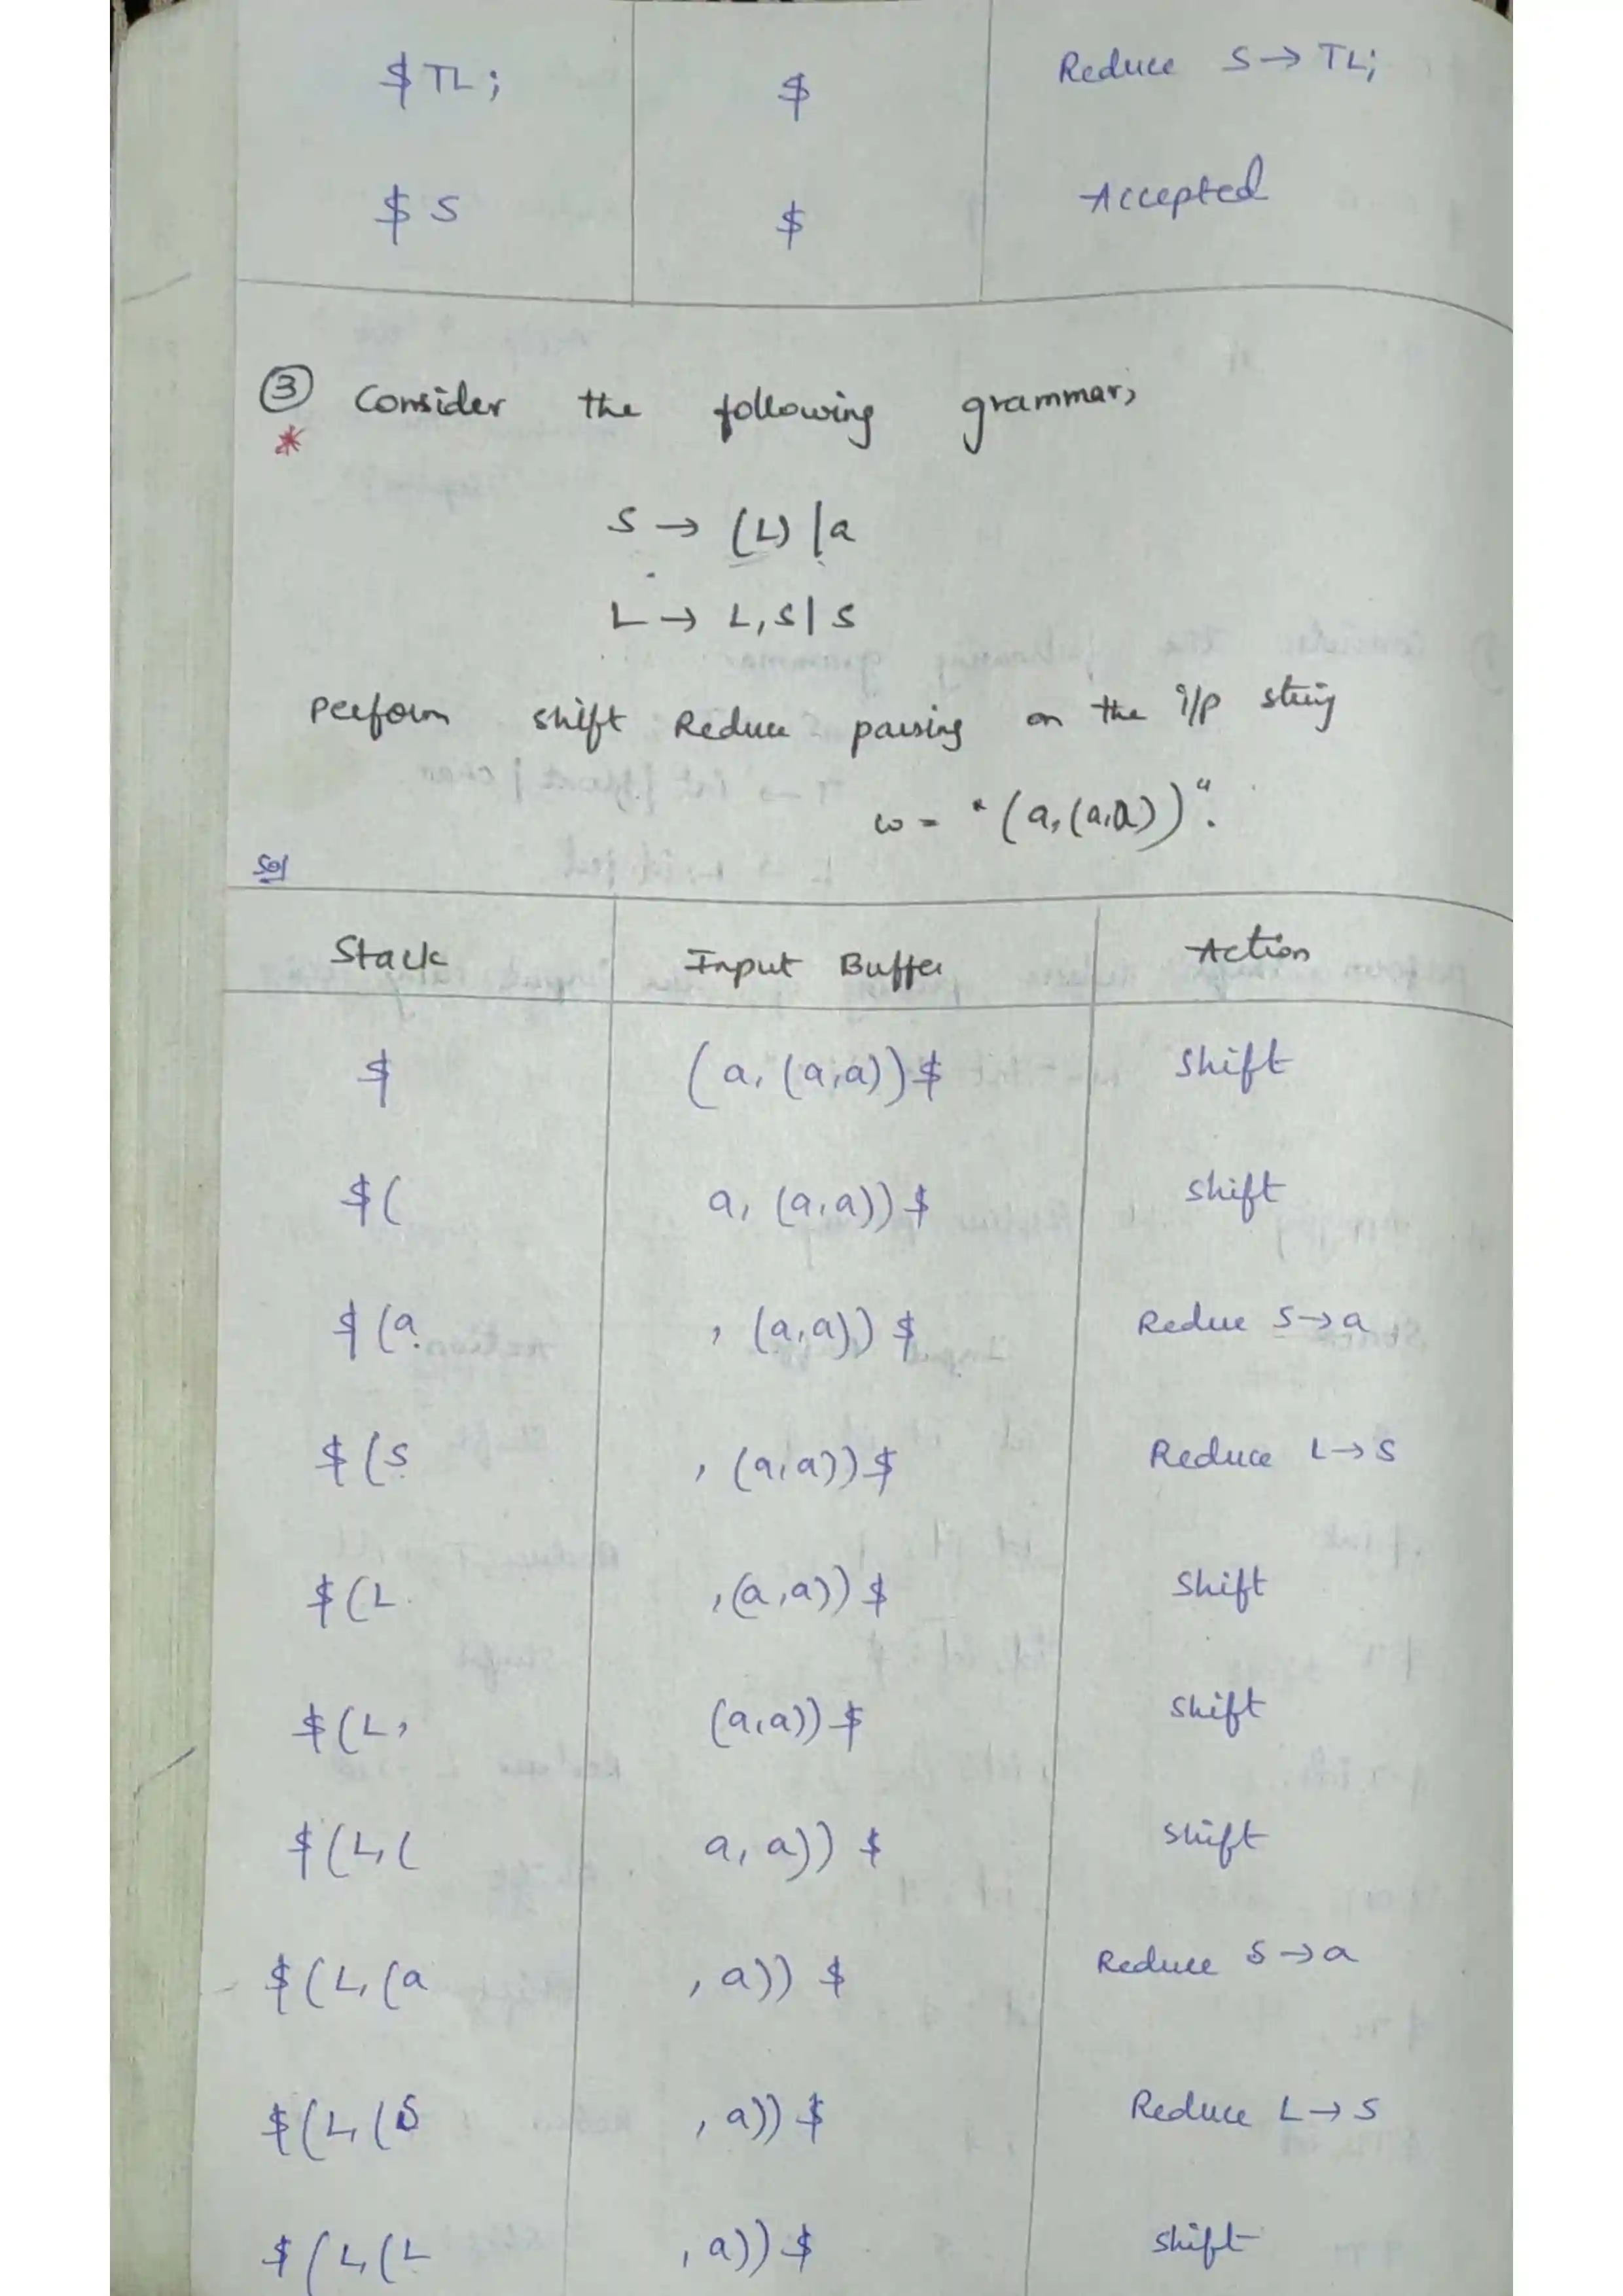 $ TL ; $ Reduce S → TL;
$ S $ Accepted
③ Consider the following grammar,
*
S → (L) | a
L → L, S | S
Perform shift Reduce parsing on the i/p string
w = "(a, (a,a))".
Sol
Stack Input Buffer Action
$ (a, (a,a))$ Shift
$( a, (a,a))$ Shift
$(a , (a,a))$ Reduce S → a
$(S , (a,a))$ Reduce L → S
$(L , (a,a))$ Shift
$(L, (a,a))$ Shift
$(L,( a, a))$ Shift
$(L,(a , a))$ Reduce S → a
$(L,(S , a))$ Reduce L → S
$(L,(L , a))$ Shift